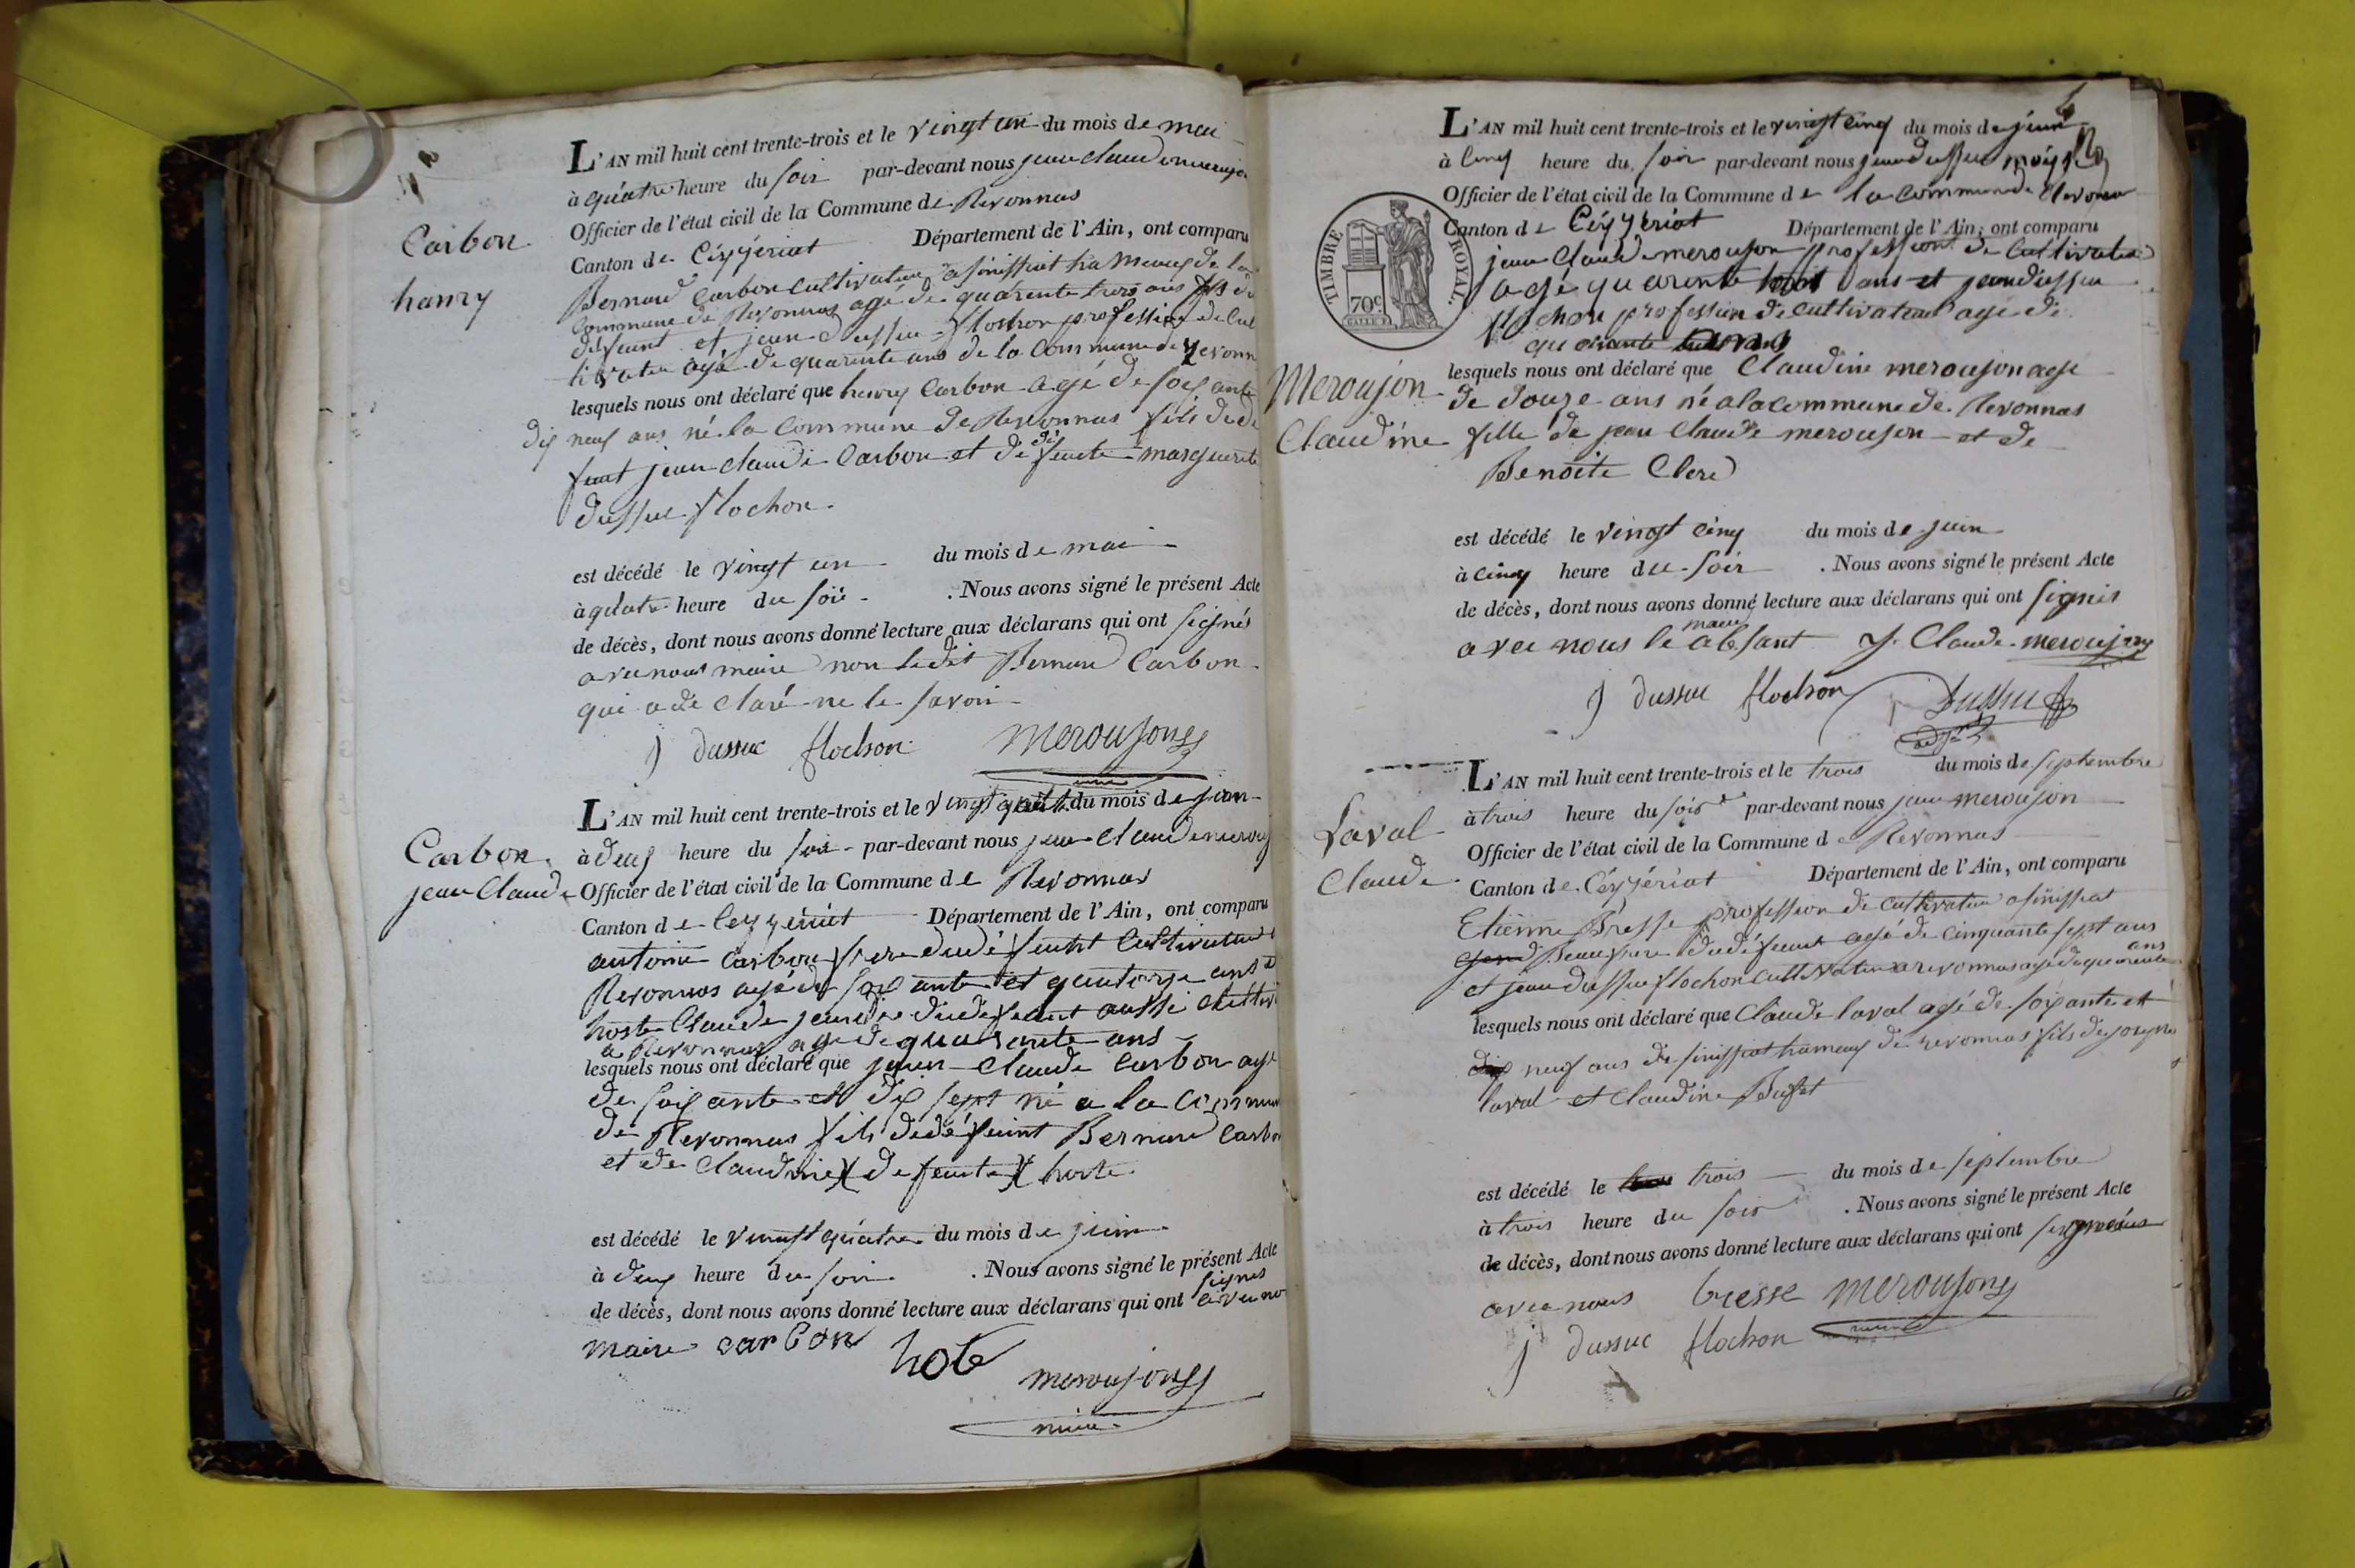 L'AN mil huit cent trente-trois et le vingt un du mois de mai
à quatre heure du soir par-devant nous jean claude merujon
Officier de l'état civil de la Commune de Revonnas
Canton de Ceyzériat Département de l'Ain, ont comparu
Carbon
hanry
Bernard Carbon cultivateur a sinissiat hameau de la
Commune de Revonnas agé de quarente trois ans fils du
défeunt et jean dussuc flochon profession de cul
tivateur agé de quarente ans de la Commune de revonn
lesquels nous ont déclaré que henry Carbon agé de soixante
dix neuf ans né la Commune de Revonnas fils dudé
funt jean claude Carbon et de défeunte marguerite
dussuc flochon.
est décédé le vingt un du mois de mai
à quatre heure du soir. Nous avons signé le présent Acte
de décès, dont nous avons donné lecture aux déclarans qui ont signés
avec nous maire non ledit Bernard Carbon
qui a déclaré ne le savoir
j dussuc flochon meroujon
maire
L'AN mil huit cent trente-trois et le vingt quatre du mois de juin
Carbon
jean Claude
à deux heure du soir par-devant nous jean claude merouj
Officier de l'état civil de la Commune de Revonnas
Canton de Ceyzériat Département de l'Ain, ont comparu
antoine Carbon frere dudéfeunt Cultivateur
Revonnas agé de soixante et quatorze ans et
hoste Claude jendre dudefeunt aussi cultiv
a Revonnas agé de quarante ans
lesquels nous ont déclaré que jean Claude Carbon agé
de soixante et dix sept né a la Commun
de Revonnas fils dedéfeunt Bernard Carbon
et de Claudine defeunte hoste
est décédé le vingt quatre du mois de juin
à deux heure du soir. Nous avons signé le présent Acte
de décès, dont nous avons donné lecture aux déclarans qui ont signés avec no
maire carbon hote meroujon
maire
L'AN mil huit cent trente-trois et le vingt cinq du mois de juin
à cinq heure du soir par-devant nous jean dussuc
Officier de l'état civil de la Commune de la commune de Revonna
Canton de Ceyzeriat Département de l'Ain, ont comparu
TIMBRE ROYAL
70c
jean Claude meroujon profession de cultivateur
agé quarente huit ans et jean dussuc
flochon profession de cultivateur agé de
quarante ans
Meroujon
Claudine
lesquels nous ont déclaré que Claudine meroujon agé
de douze ans né a la commune de Revonnas
fille de jean Claude meroujon et de
Benoite Clerd
est décédé le vingt cinq du mois de juin
à cinq heure du soir. Nous avons signé le présent Acte
de décès, dont nous avons donné lecture aux déclarans qui ont signés
avec nous le maire absant J. Claude meroujon
j dussuc flochon Dussuc
adjt
L'AN mil huit cent trente-trois et le trois du mois de septembre
Laval
Claude
à trois heure du soir par-devant nous jean meroujon
Officier de l'état civil de la Commune de Revonnas
Canton de Ceyzériat Département de l'Ain, ont comparu
Etienne Bresse profession de cultivateur a sinissiat
Beaufrere dudéfeunt agé de cinquante sept ans
et jean dussuc flochon cultivateur a revonnas agé de quarente ans
lesquels nous ont déclaré que Claude laval agé de soixante et
dix neuf ans de sinissiat hameau de revonnas fils de joseph
laval et Claudine Bufet
est décédé le trois du mois de septembre
à trois heure du soir. Nous avons signé le présent Acte
de décès, dont nous avons donné lecture aux déclarans qui ont signés
avec nous bresse meroujon
j dussuc flochon maire